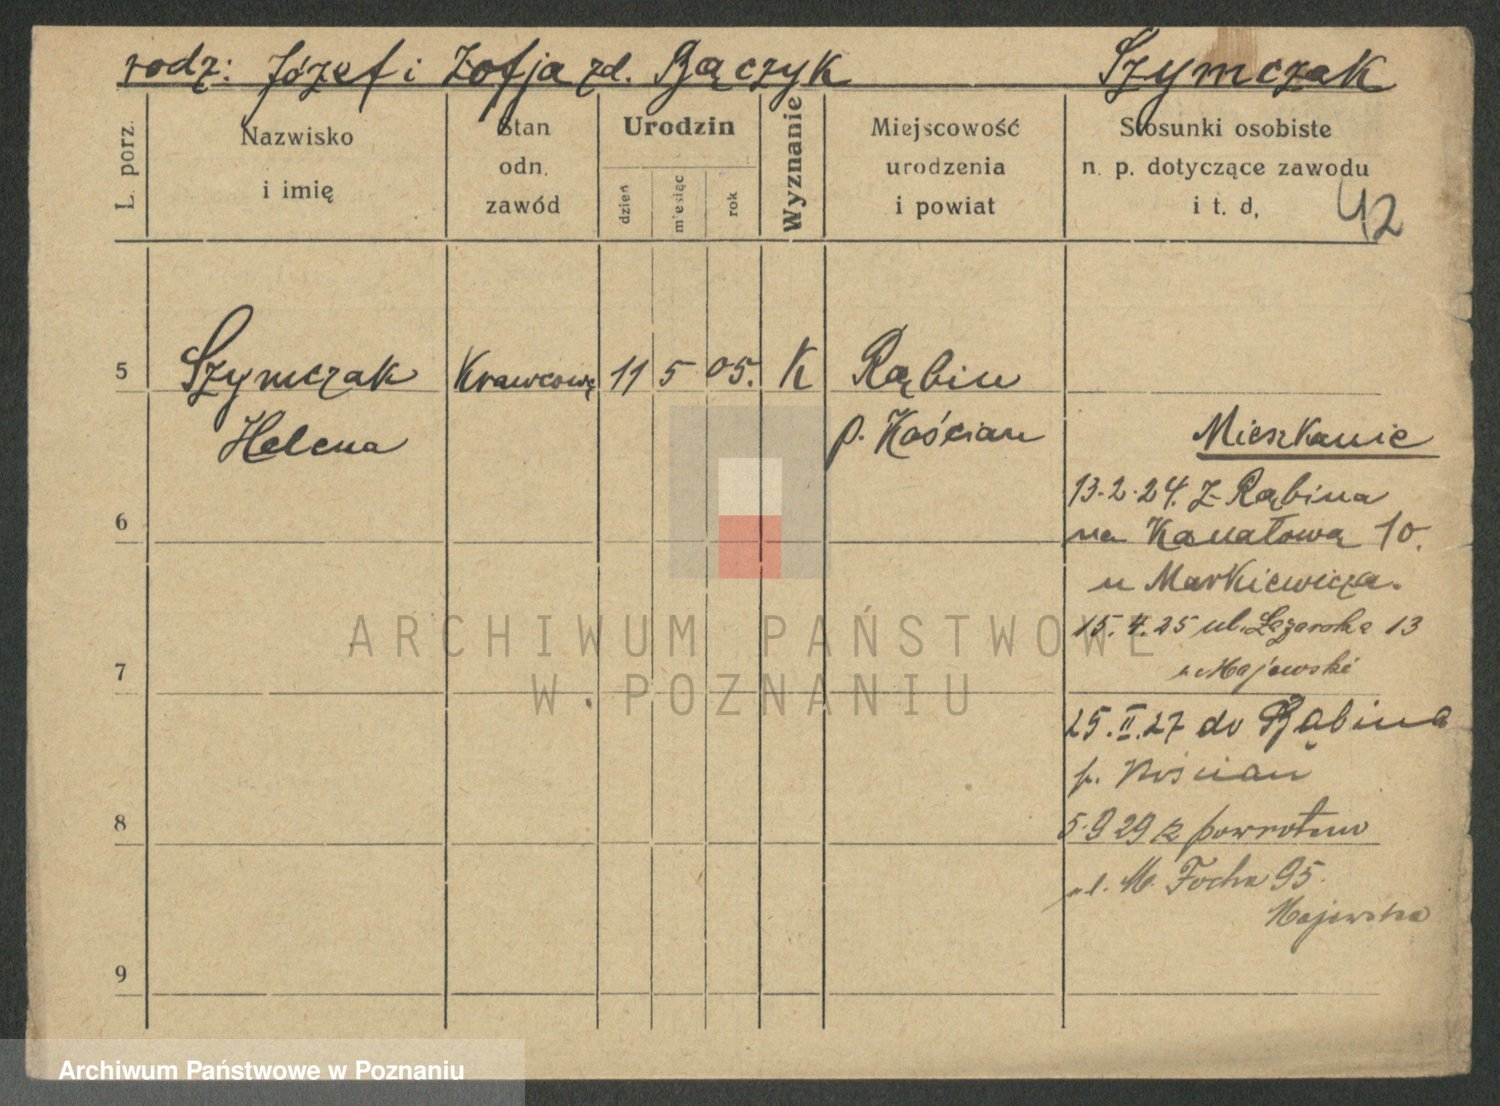 rodz: Józef i Zofja zd. Bączyk Szymczak
L. porz.
Nazwisko
i imię
Stan
odn.
zawód
Urodzin
dzień
miesiąc
rok
Wyznanie
Miejscowość
urodzenia
i powiat
Stosunki osobiste
n. p. dotyczące zawodu
i t. d,
42
5 Szymczak Krawcową 11 5 05. K Rąbiń
Helena p. Kościan
Mieszkanie
13.2.24. z Rąbina
6
na Kanałową 10.
u Markiewicza.
15.4.25 ul. Łazarska 13
u Majewski
7
25.II.27 do Rąbina
p. Kościan
8
5.9 29 z powrotem
ul. M. Focha 95.
Majewska
9
ARCHIWUM PAŃSTWOWE
W POZNANIU
Archiwum Państwowe w Poznaniu